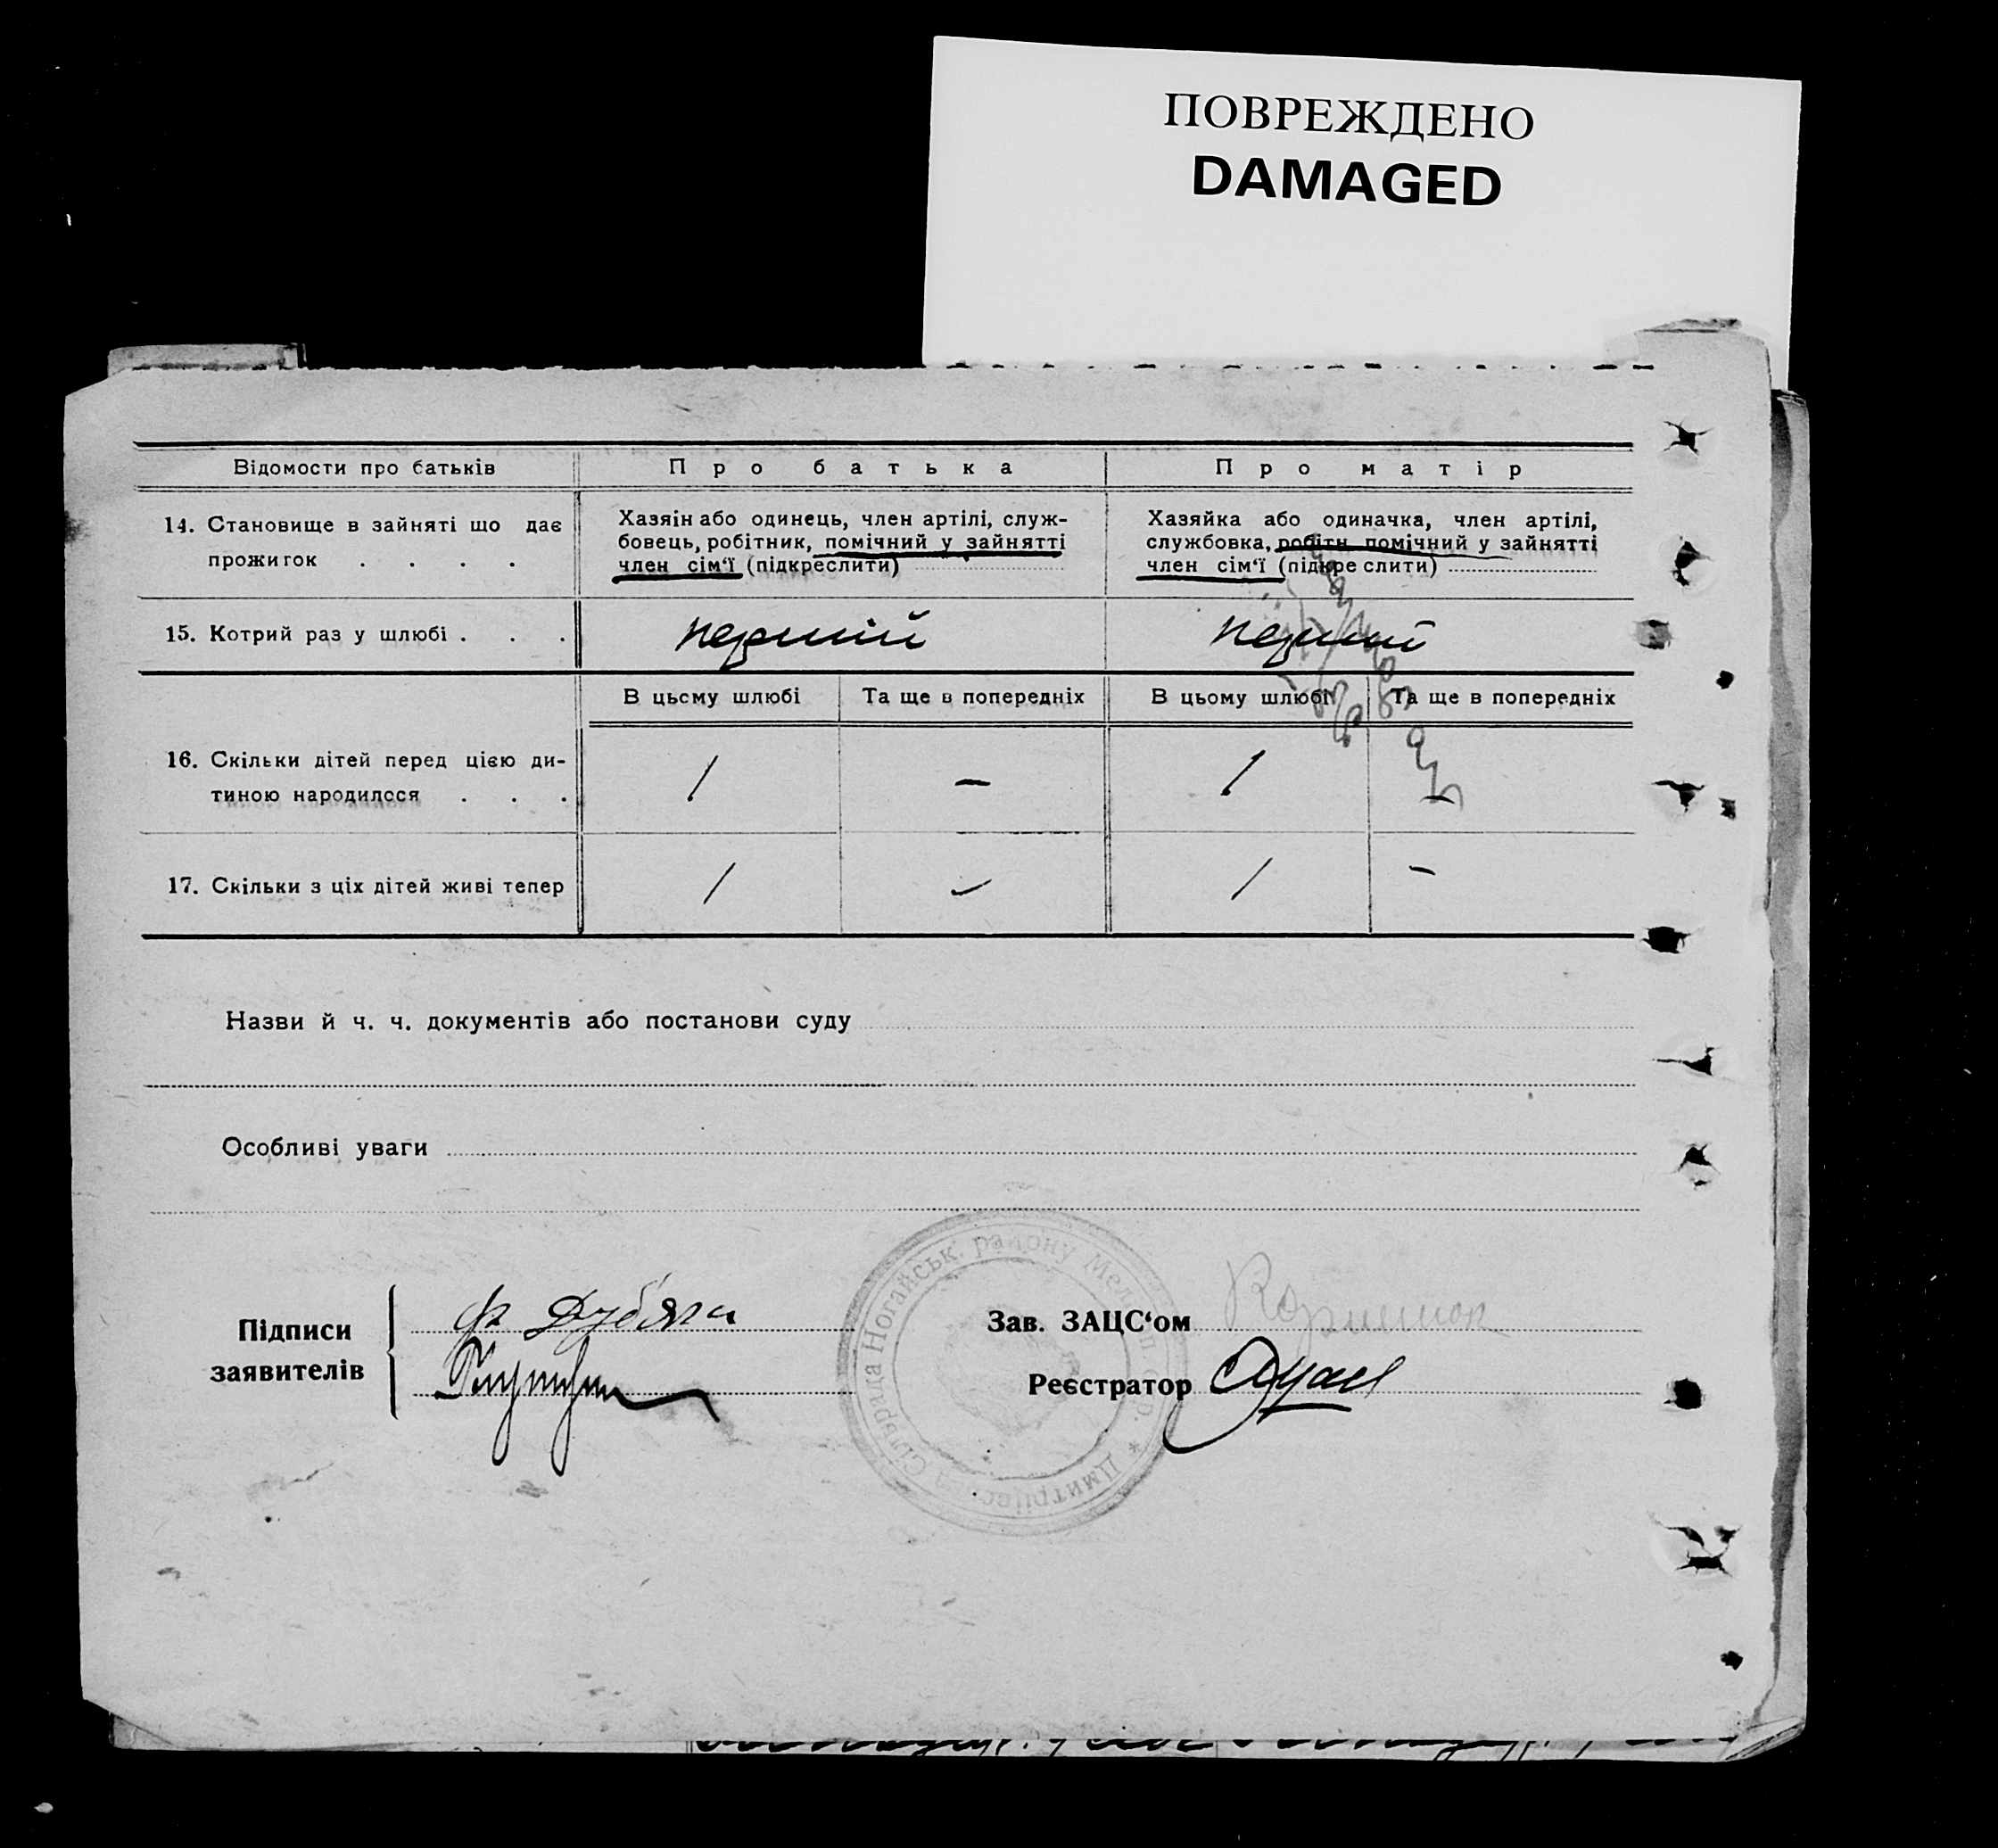 ПОВРЕЖДЕНО
DAMAGED
Відомости про батьків
Про батька
Про матір
14. Становище в зайняті що дає
прожиток . . . .
Хазяін або одинець, член артілі, служ-
бовець, робітник, помічний у зайнятті
член сім‘ї (підкреслити)
Хазяйка або одиначка, член артілі,
службовка, робітн. помічний у зайнятті
член сім‘ї (підкреслити)
15. Котрий раз у шлюбі . . .
первий
первий
В цьсму шлюбі
Та ще в попередніх
В цьому шлюбі
Та ще в попередніх
16. Скільки дітей перед цією ди-
тиною народилося . . .
1
–
1
–
17. Скільки з ціх дітей живі тепер
1
–
1
–
Назви й ч. ч. документів або постанови суду
Особливі уваги
Підписи
заявителів
Дубяга
Зав. ЗАЦС‘ом
Реєстратор
Сільрада Ногайськ. району Меліт